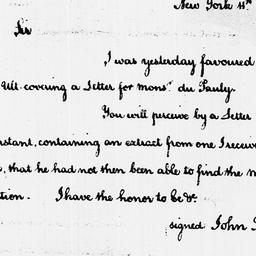 New York 11th
Sir
I was yesterday favoured
Ult. covering a Letter for monsr. du Pauly.
You will perceive by a Letter
instant, containing an extract from one I receive
, that he had not then been able to find the m
tion. I have the honor to be &c.
signed John